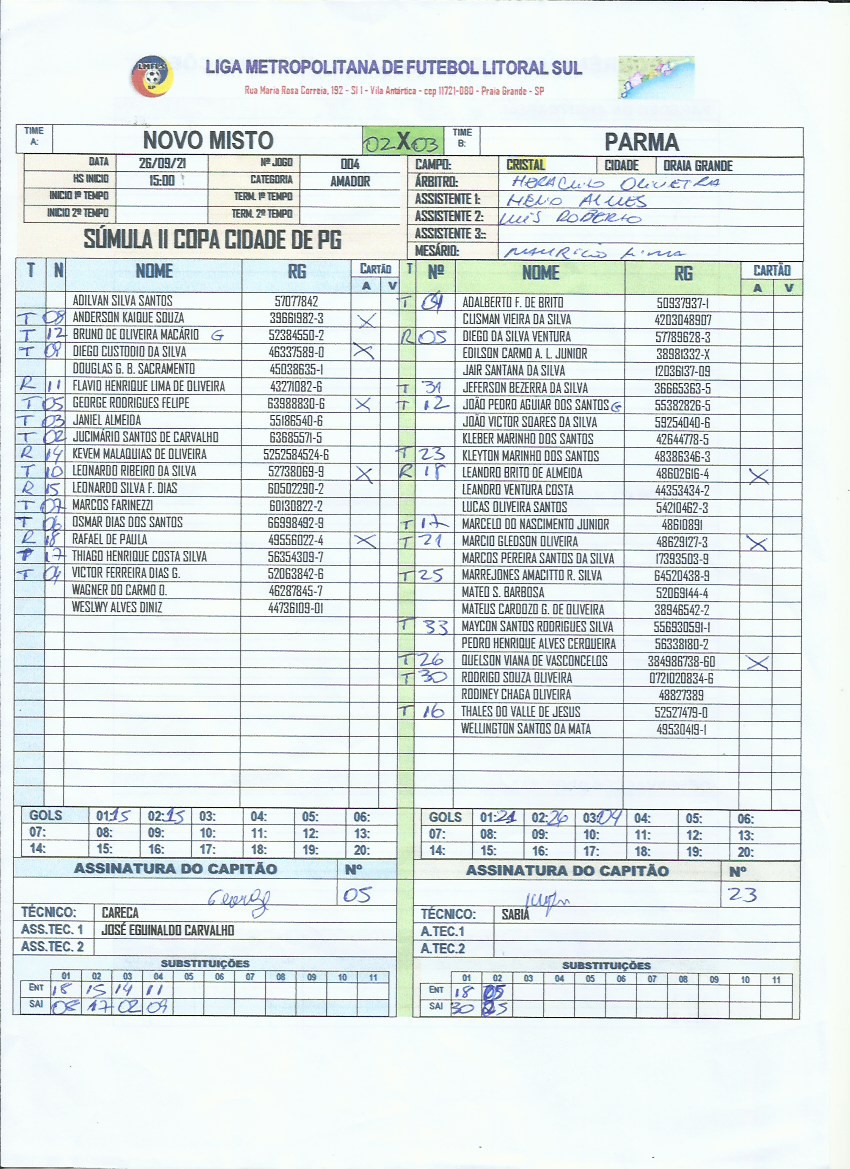 LIGA METROPOLITANA DE FUTEBOL LITORAL SUL
Rua Maria Rosa Correia, 192 - Sl 1 - Vila Antártica - cep 11721-080 - Praia Grande - SP
TIME A: NOVO MISTO 02 X 03 TIME B: PARMA
DATA 26/09/21 Nº JOGO 004 CAMPO: CRISTAL CIDADE ORAIA GRANDE
HS INICIO 15:00 CATEGORIA AMADOR ÁRBITRO: HERACLILO OLIVEIRA
INICIO 1º TEMPO TERM. 1º TEMPO ASSISTENTE 1: HELIO ALVES
INICIO 2º TEMPO TERM. 2º TEMPO ASSISTENTE 2: LUIS ROBERTO
ASSISTENTE 3::
SÚMULA II COPA CIDADE DE PG MESÁRIO: MAURICIO LIMA
T N NOME RG CARTÃO A V T Nº NOME RG CARTÃO A V
ADILVAN SILVA SANTOS 57077842 T 04 ADALBERTO F. DE BRITO 50937937-1
T 08 ANDERSON KAIQUE SOUZA 39661982-3 X CLISMAN VIEIRA DA SILVA 4203048907
T 12 BRUNO DE OLIVEIRA MACÁRIO G 52384550-2 R 05 DIEGO DA SILVA VENTURA 57789628-3
T 09 DIEGO CUSTODIO DA SILVA 46337589-0 X EDILSON CARMO A. L. JUNIOR 38981332-X
DOUGLAS G. B. SACRAMENTO 45038635-1 JAIR SANTANA DA SILVA 12036137-09
R 11 FLAVIO HENRIQUE LIMA DE OLIVEIRA 43271082-6 T 31 JEFERSON BEZERRA DA SILVA 36665363-5
T 05 GEORGE RODRIGUES FELIPE 63988830-6 X T 12 JOÃO PEDRO AGUIAR DOS SANTOS G 55382826-5
T 03 JANIEL ALMEIDA 55186540-6 JOÃO VICTOR SOARES DA SILVA 59254040-6
T 02 JUCIMÁRIO SANTOS DE CARVALHO 63685571-5 KLEBER MARINHO DOS SANTOS 42644778-5
R 14 KEVEM MALAQUIAS DE OLIVEIRA 5252584524-6 T 23 KLEYTON MARINHO DOS SANTOS 48386346-3
T 10 LEONARDO RIBEIRO DA SILVA 52738069-9 X R 18 LEANDRO BRITO DE ALMEIDA 48602616-4 X
R 15 LEONARDO SILVA F. DIAS 60502290-2 LEANDRO VENTURA COSTA 44353434-2
T 07 MARCOS FARINEZZI 60130822-2 LUCAS OLIVEIRA SANTOS 54210462-3
T 06 OSMAR DIAS DOS SANTOS 66998492-9 T 17 MARCELO DO NASCIMENTO JUNIOR 48610891
R 18 RAFAEL DE PAULA 49556022-4 X T 21 MARCIO GLEDSON OLIVEIRA 48629127-3 X
T 17 THIAGO HENRIQUE COSTA SILVA 56354309-7 MARCOS PEREIRA SANTOS DA SILVA 17393503-9
T 04 VICTOR FERREIRA DIAS G. 52063842-6 T 25 MARREJONES AMACITTO R. SILVA 64520438-9
WAGNER DO CARMO O. 46287845-7 MATEO S. BARBOSA 52069144-4
WESLWY ALVES DINIZ 44736109-01 MATEUS CARDOZO G. DE OLIVEIRA 38946542-2
T 33 MAYCON SANTOS RODRIGUES SILVA 556930591-1
PEDRO HENRIQUE ALVES CERQUEIRA 56338180-2
T 26 QUELSON VIANA DE VASCONCELOS 384986738-60 X
T 30 RODRIGO SOUZA OLIVEIRA 0721020834-6
RODINEY CHAGA OLIVEIRA 48827389
T 16 THALES DO VALLE DE JESUS 52527479-0
WELLINGTON SANTOS DA MATA 49530419-1
GOLS 01: 15 02: 15 03: 04: 05: 06: GOLS 01: 21 02: 26 03: 04 04: 05: 06:
07: 08: 09: 10: 11: 12: 13: 07: 08: 09: 10: 11: 12: 13:
14: 15: 16: 17: 18: 19: 20: 14: 15: 16: 17: 18: 19: 20:
ASSINATURA DO CAPITÃO Nº ASSINATURA DO CAPITÃO Nº
George 05 23
TÉCNICO: CARECA TÉCNICO: SABIÁ
ASS.TEC. 1 JOSÉ EGUINALDO CARVALHO A.TEC.1
ASS.TEC. 2 A.TEC.2
SUBSTITUIÇÕES SUBSTITUIÇÕES
01 02 03 04 05 06 07 08 09 10 11 01 02 03 04 05 06 07 08 09 10 11
ENT 18 15 14 11 ENT 18 05
SAI 08 17 02 09 SAI 30 25